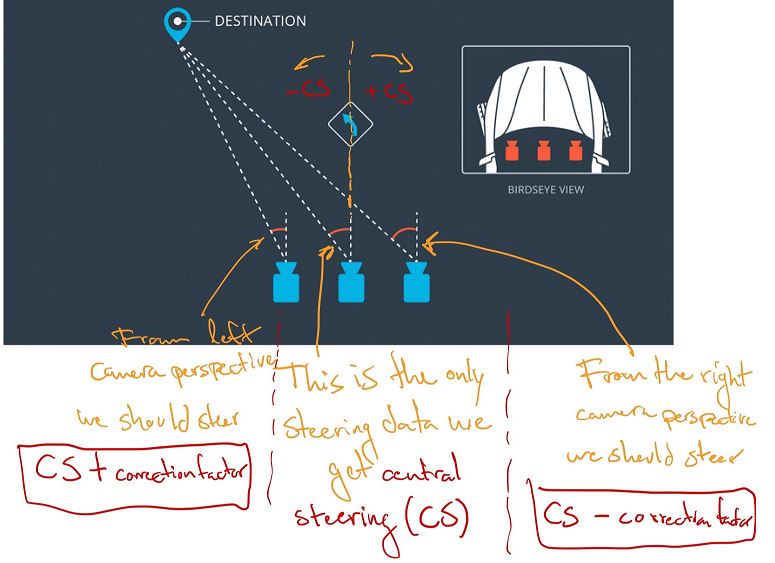 DESTINATION
-CS
+CS
BIRDSEYE VIEW
From left
camera perspective
we should steer
CS + correction factor
This is the only
steering data we
get central
steering (CS)
From the right
camera perspective
we should steer
CS - correction factor